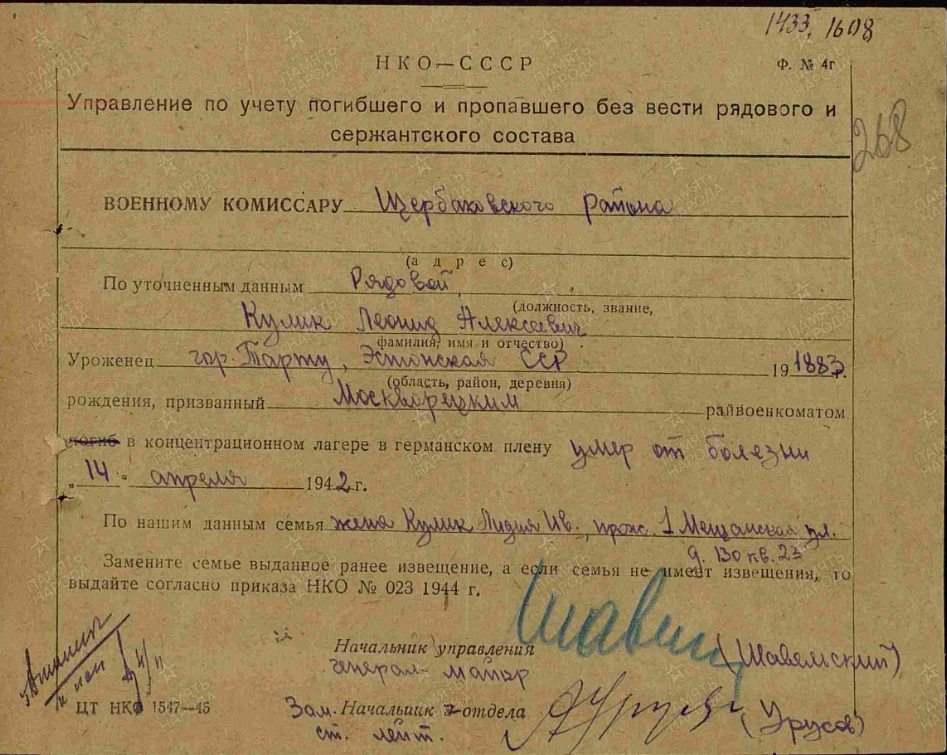 1433, 1608
НКО—СССР
Ф. № 4г
Управление по учету погибшего и пропавшего без вести рядового и
сержантского состава
268
ВОЕННОМУ КОМИССАРУ Щербаковского района
(адрес)
По уточненным данным Рядовой
(должность, звание,
Кулик Леонид Алексеевич
фамилия, имя и отчество)
Уроженец гор. Тарту, Эстонская ССР 19 1883 г.
(область, район, деревня)
рождения, призванный Москворецким райвоенкоматом
погиб в концентрационном лагере в германском плену умер от болезни
„14“ апреля 1942 г.
По нашим данным семья жена Кулик Лидия Ив., прож. 1 Мещанская ул.
д. 130 кв. 23
Замените семье выданное ранее извещение, а если семья не имеет извещения, то
выдайте согласно приказа НКО № 023 1944 г.
Начальник управления
генерал-майор
ЦТ НКО 1547—45
Зам. Начальник 7 отдела (Урусов)
ст. лейт.